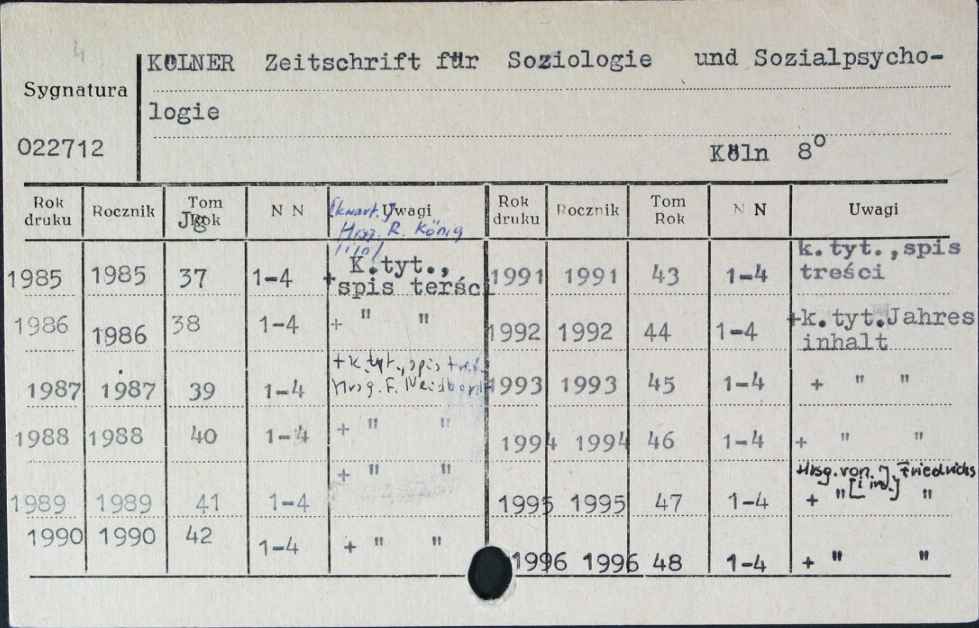 4
KÖLNER Zeitschrift für Soziologie und Sozialpsycho-
Sygnatura
logie
022712
Köln 8°
Rok druku Rocznik Tom Rok Jg N N [kwart.] Uwagi Rok druku Rocznik Tom Rok N N Uwagi
Hrsg. R. König
1985 1985 37 1-4 + K.tyt., spis terści 1991 1991 43 1-4 k.tyt.,spis treści
1986 1986 38 1-4 + " " 1992 1992 44 1-4 +k.tyt.Jahres inhalt
1987 1987 39 1-4 +k.tyt.,spis treści Hrsg. F. 1993 1993 45 1-4 + " "
1988 1988 40 1-4 + " " 1994 1994 46 1-4 + " "
1989 1989 41 1-4 + " " 1995 1995 47 1-4 Hrsg. von. J. Friedrichs [i in.] + " "
1990 1990 42 1-4 + " " 1996 1996 48 1-4 + " "